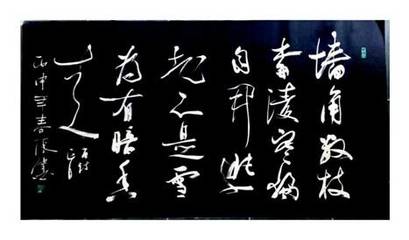 墙角数枝
梅凌寒独
自开遥
知不是雪
为有暗香
来
丙申年春